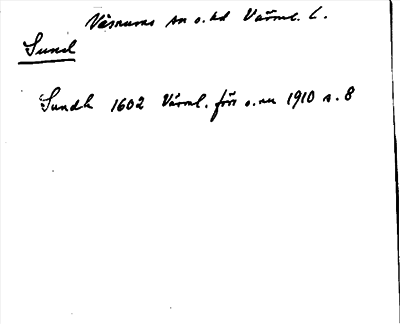 Väsnuras sn o. hd Värml. l.
Sund
Sundh 1602 Värml. förr o. nu 1910 s. 8